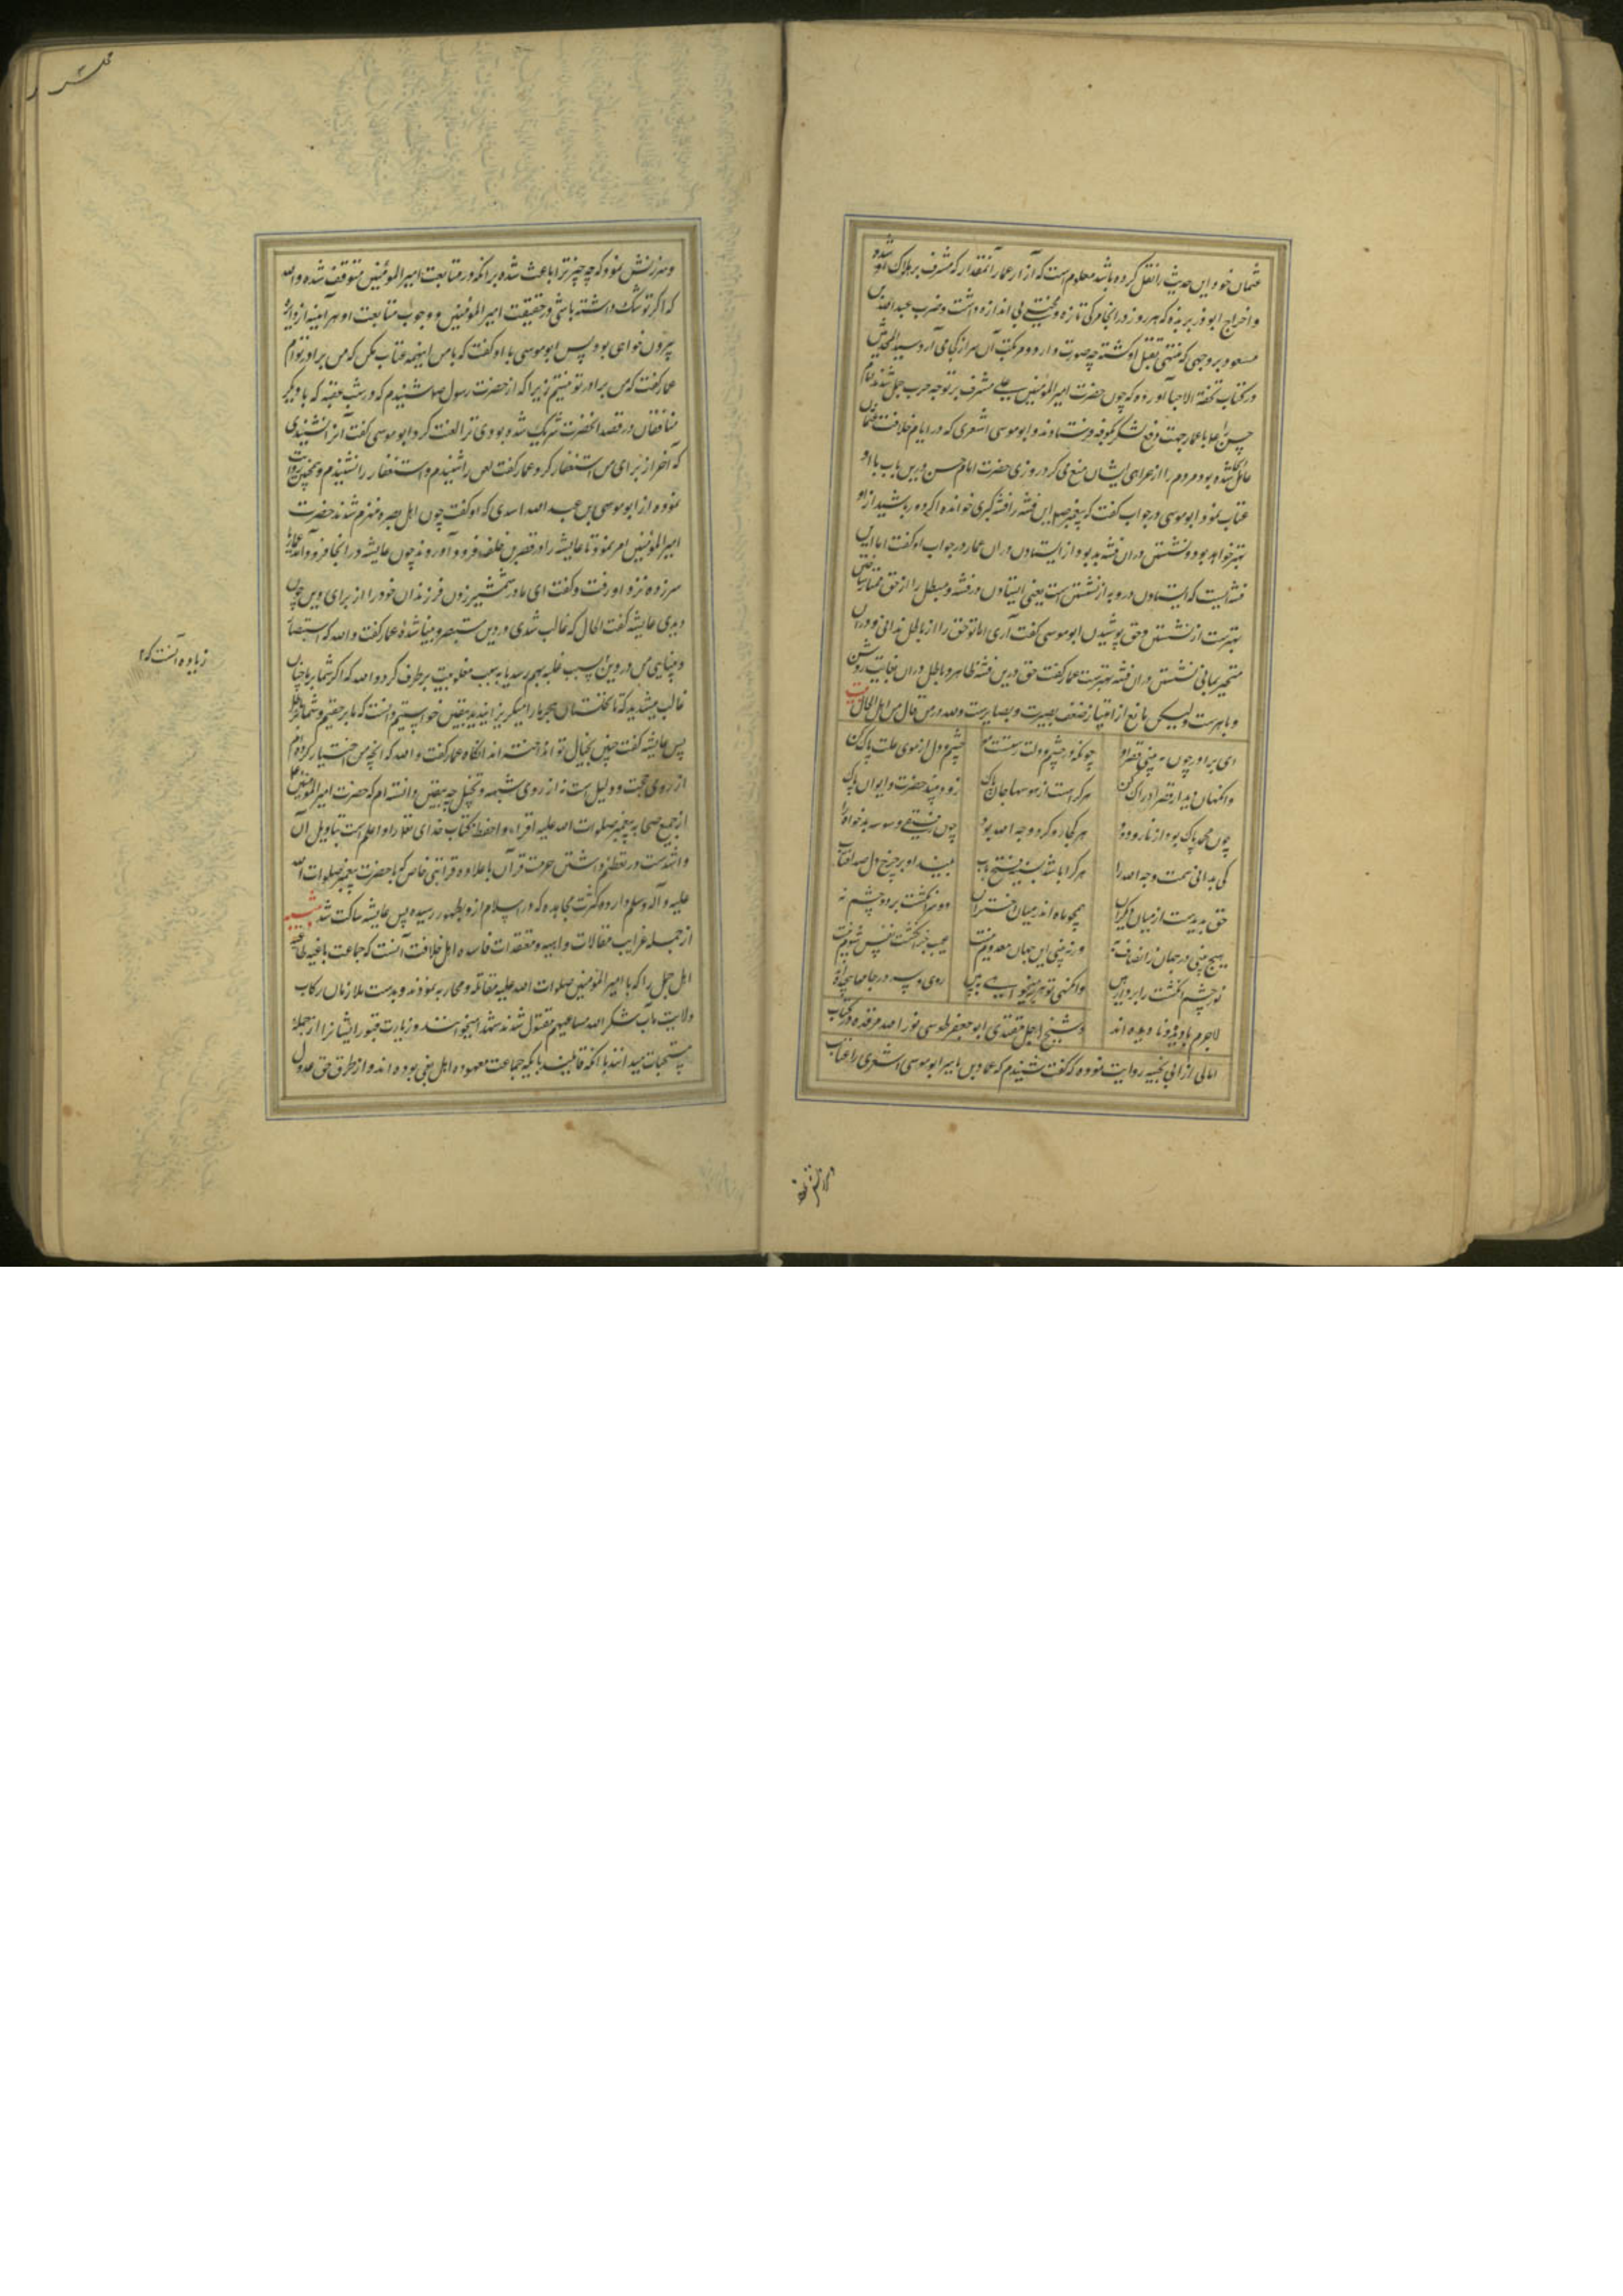 عثمان خود این حدیث را نقل کرده باشد معلوم است که آزار عمار آنمقدار که مشرف بر هلاک او شد و
و اخراج ابوذر بربذه که هر روز در انجا مرکی تازه و محنتی بی اندازه داشت و ضرب عبدالله بن
مسعود بر وجهی که منتهی بقتل او کشته چه صورت دارد و مرتکب آن سر از کجا می آرد و سید المحدثین
در کتاب تحفة الاحبا آورده که چون حضرت امیرالمؤمنین علی مشرف بر توجه حرب جمل شدند امام
حسن را با عمار جهت دفع لشکر بکوفه فرستادند و ابوموسی اشعری که در ایام خلافت عثمان
عامل آنجا شده بود مردم را از همراهی ایشان منع می کرد روزی حضرت امام حسن درین باب با او
عتاب نمود ابوموسی در جواب گفت که پیغمبر صلعم این فتنه را فتنه کبری خوانده اگر دور باشید از او
بهتر خواهد بود و نشستن در ان فتنه به بود از ایستادن در ان عمار در جواب او گفت اما این
فتنه ایست که ایستادن درو به از نشستن است یعنی ایستادن در فتنه و مبطل را از حق ممتاز ساختن
بهترست از نشستن و حق پوشیدن ابوموسی گفت آری اما تو حق را از باطل ندانی و در ان
متحیر بمانی نشستن در ان فتنه بهترست عمار گفت حق درین فتنه ظاهر و باطل در ان بغایت روشن
و باهرست ولیکن مانع از امتیاز ضعف بصیرت و بصایرست ولله در من قال من اهل الحال بیت
ای برادر چون به بینی قصر او چونکه در چشم دلت رستست مو چشم دل از موی علت پاک کن
وانکهان دیدار قصرش ادراک کن هر کرا هست از هوسها جان پاک زود بیند حضرت و ایوان پاک
چون محمد پاک بود از نار و دود هر کجا رو کرد وجه الله بود چون رفیقی وسوسه بدخواه را
کی بدانی ثمت وجه الله را هر کرا باشد ز سینه فتح باب بیند او بر چرخ دل صد آفتاب
حق پدیدست از میان دیگران همچو ماه اندر میان اختران دو سر انگشت بر دو چشم نه
هیچ بینی در جهان ز انصاف ده ور نه بینی این جهان معدوم نیست عیب جز انگشت نفس شوم نیست
تو ز چشم انگشت را بردار هین وانکهی تو هر چه میخواهی به بین روی و سر در جامها پیچیده اند
لاجرم با دیده و نادیده اند و شیخ اجل مقتدی ابوجعفر طوسی نور الله مرقده در کتاب
امالی از ابی نجیه روایت نموده که گفت شنیدم که عمار بن یاسر ابوموسی اشعری را عتاب
و سرزنش نمود که چه چیز ترا باعث شده بر انکه در متابعت امیرالمؤمنین متوقف شده والله
که اگر تو شک داشته باشی در حقیقت امیرالمؤمنین و وجوب متابعت او هر آینه از دایره
بیرون خواهی بود پس ابوموسی با او گفت که با من اینهمه عتاب مکن که من برادر توام
عمار گفت که من برادر تو نیستم زیرا که از حضرت رسول ص شنیدم که در شب عقبه که با دیگر
منافقان در قصد آنحضرت شریک شده بودی ترا لعنت کرد ابوموسی گفت آنرا نشنیدی
که آخر از برای من استغفار کرد عمار گفت لعن را شنیدم و استغفار را نشنیدم و همچنین روایت
نموده از ابوموسی بن عبدالله اسدی که او گفت چون اهل بصره منهزم شدند حضرت
امیرالمؤمنین امر نمود تا عایشه را در قصر بنی خلف فرود آوردند چون عایشه در انجا فرود آمد عمار یا
سر زده نزد او رفت و گفت ای مادر شمشیر زدن فرزندان خود را از برای دین چون
دیدی عایشه گفت الحال که غالب شدی در دین مستبصر و بینا شدهٔ عمار گفت والله که استبصار
و بینایی من در دین نه بسبب غلبه بهم رسید یا به سبب مغلوبیت برطرف گردد والله که اگر شما بر ما چنان
غالب میشدید که تا نخلستان هجر ما را میگریزانیدید بیقین خواستیم دانست که ما بر حقیم و شما بر باطل
پس عایشه گفت چنین بخیال تو انداخته اند انگاه عمار گفت والله که آنچه من اختیار کرده ام
از روی حجت و دلیل است نه از روی شبهه و تخیل چه بیقین دانسته ام که حضرت امیرالمؤمنین
از جمیع صحابه پیغمبر صلوات الله علیه اقراء و احفظ بکتاب خدای تعالی و اعلم است بتاویل آن
و اشدست در تعظیم داشتن حرمت قرآن با علاوه قرابتی خاص که با حضرت پیغمبر صلوات الله
علیه و آله وسلم دارد و کثرت مجاهده که در اسلام ازو بظهور رسیده پس عایشه ساکت شد تنبیه
از جمله غرایب مقالات واهیه و معتقدات فاسده اهل خلافت آنست که جماعت باغیه طاغیه
اهل جمل را که با امیرالمؤمنین صلوات الله علیه مقاتله و محاربه نمودند و بدست ملازمان رکاب
ولایت مآب شکر الله مساعیهم مقتول شدند شهدا میخوانند و زیارت قبور ایشانرا از جملهٔ
مستحبات میدانند با انکه قایلند باینکه جماعت معهوده اهل بغی بوده اند و از طرق حق عدول
زیاده آنست که